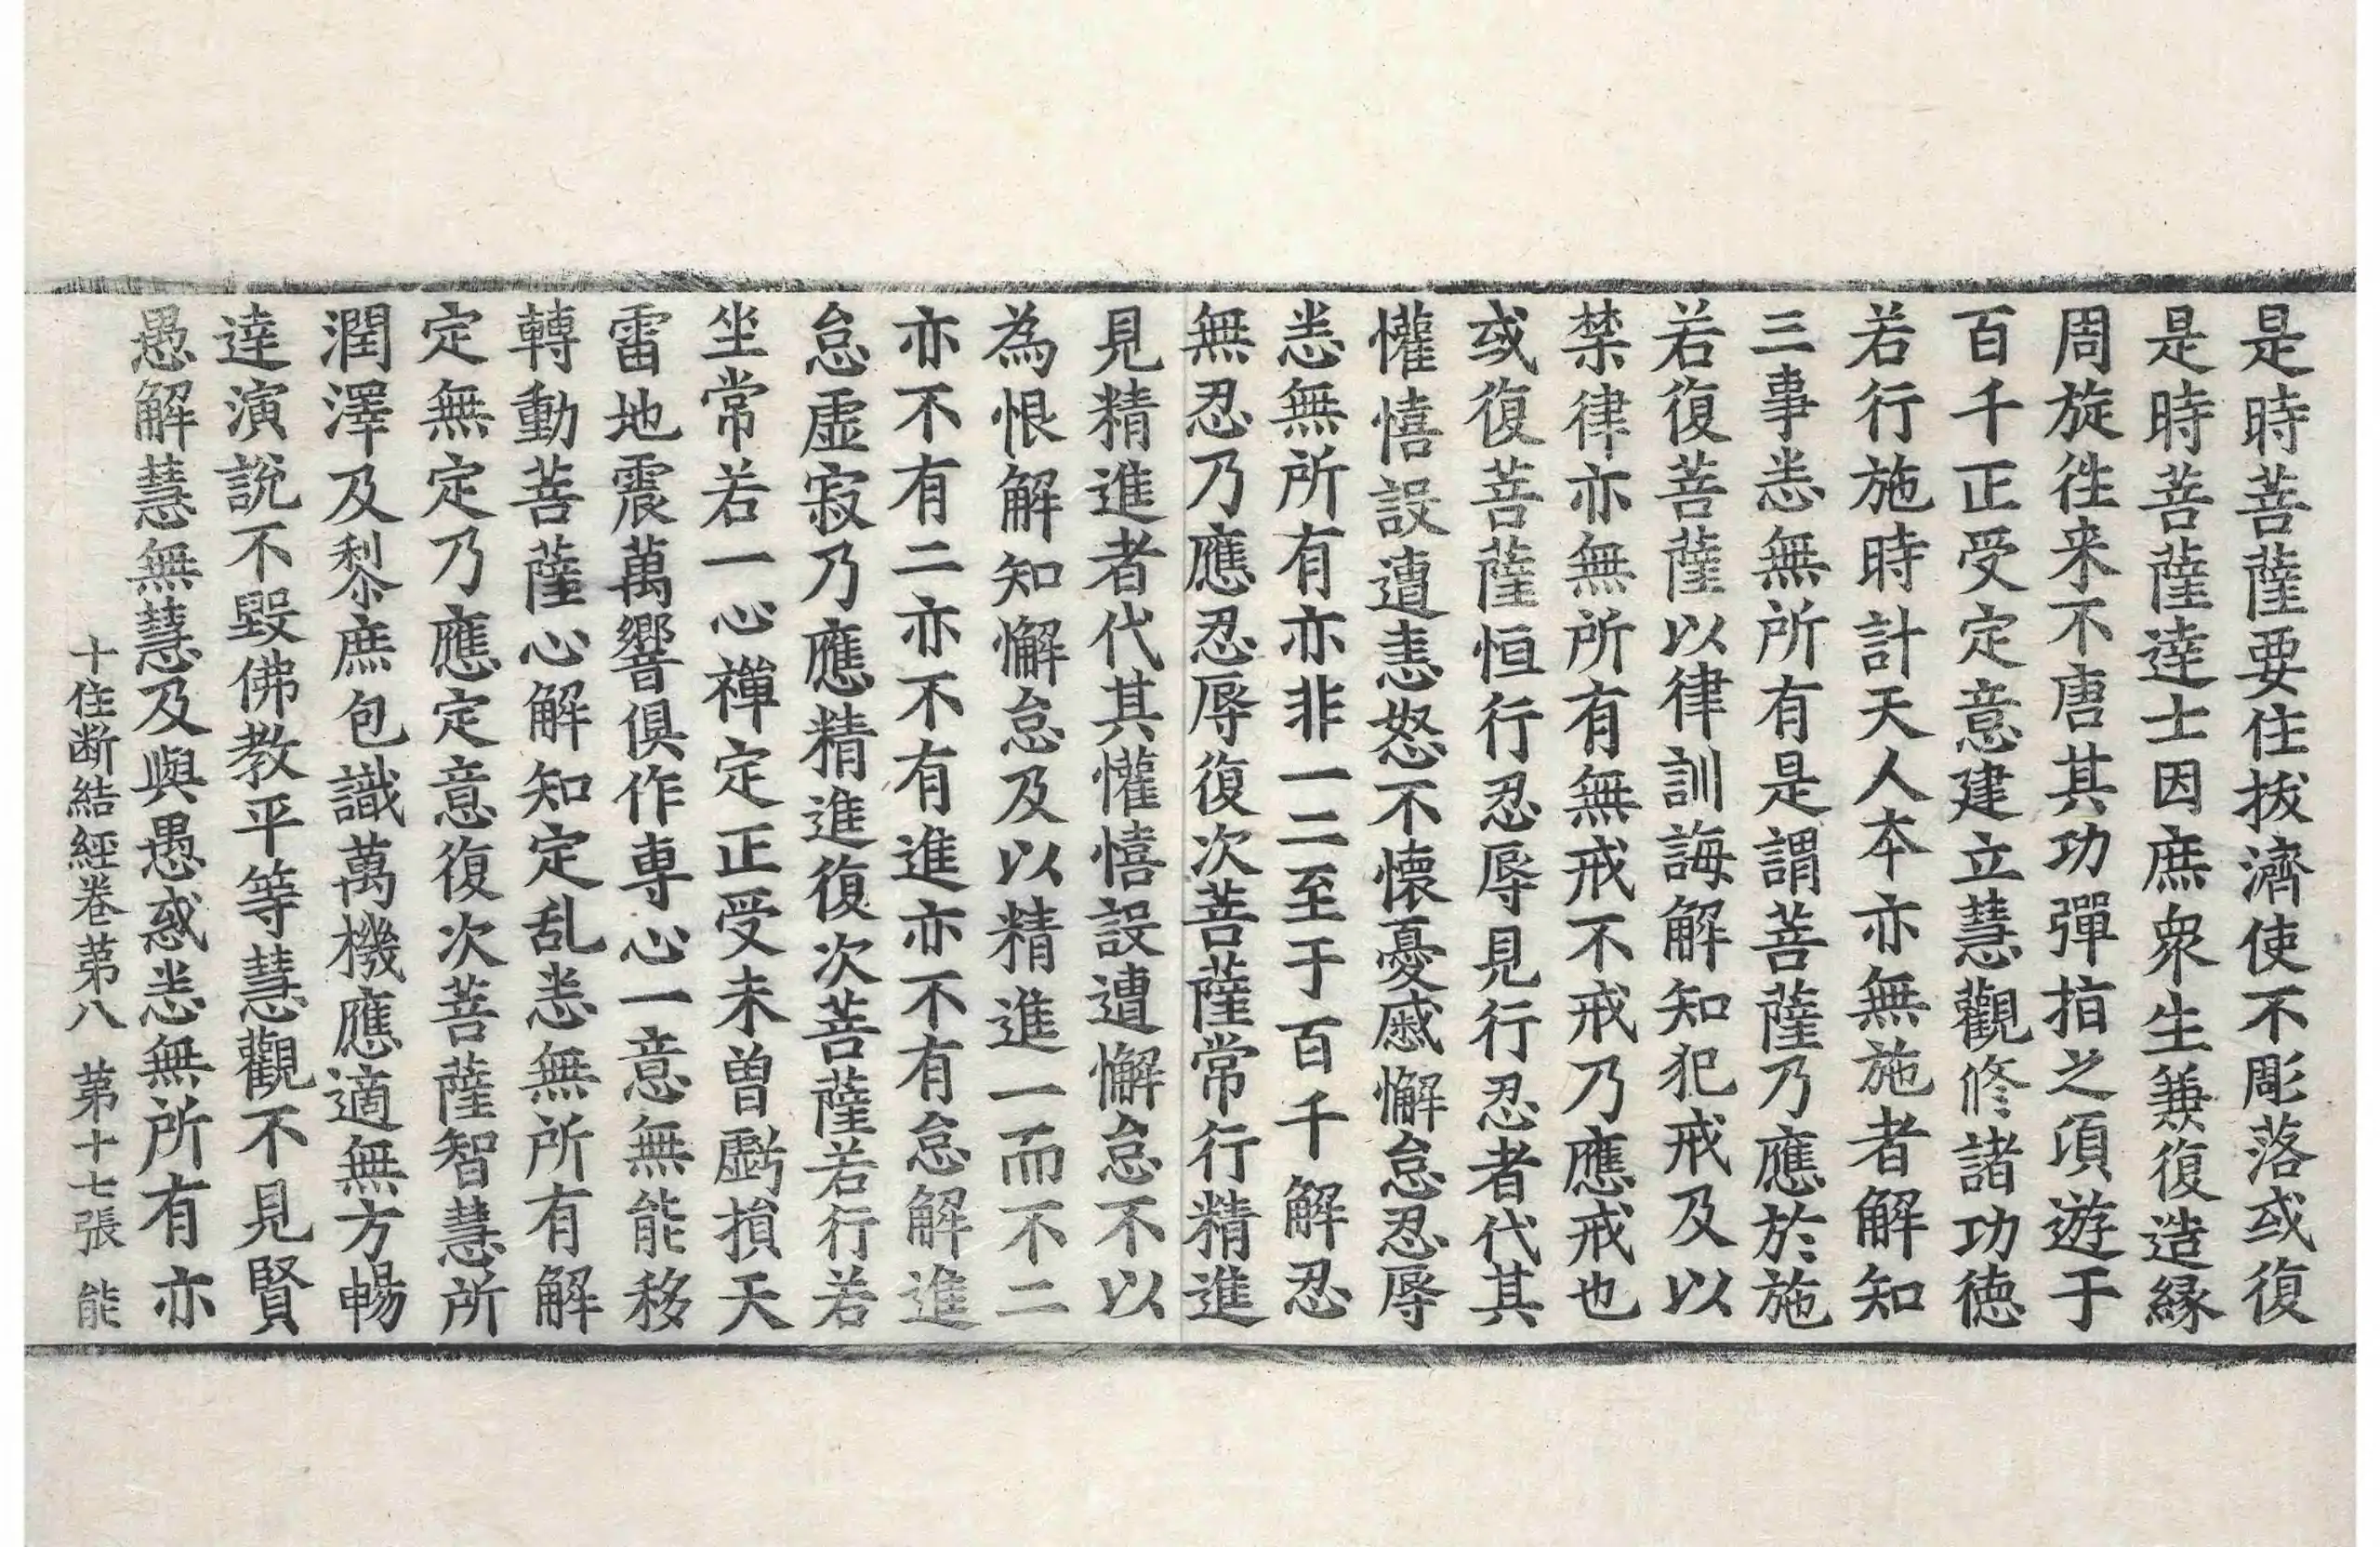 是時菩薩要住拔濟使不彫落或復
是時菩薩達士因庶衆生兼復造縁
周旋徃来不唐其功彈指之項遊于
百千正受定意建立慧觀修諸功徳
若行施時計天人本亦無施者解知
三事悉無所有是謂菩薩乃應於施
若復菩薩以律訓誨解知犯戒及以
禁律亦無所有無戒不戒乃應戒也
或復菩薩恒行忍辱見行忍者代其
懽憘設遭恚怒不懷憂慼懈怠忍辱
悉無所有亦非一二至于百千解忍
無忍乃應忍辱復次菩薩常行精進
見精進者代其懽憘設遭懈怠不以
為恨解知懈怠及以精進一而不二
亦不有二亦不有進亦不有怠解進
怠虛寂乃應精進復次菩薩若行若
坐常若一心禪定正受未曽虧損天
雷地震萬響俱作専心一意無能移
轉動菩薩心解知定乱悉無所有解
定無定乃應定意復次菩薩智慧所
潤澤及黎庶包識萬機應適無方暢
達演說不毀佛教平等慧觀不見賢
愚解慧無慧及與愚惑悉無所有亦
十住断結經卷苐八 苐十七張 能